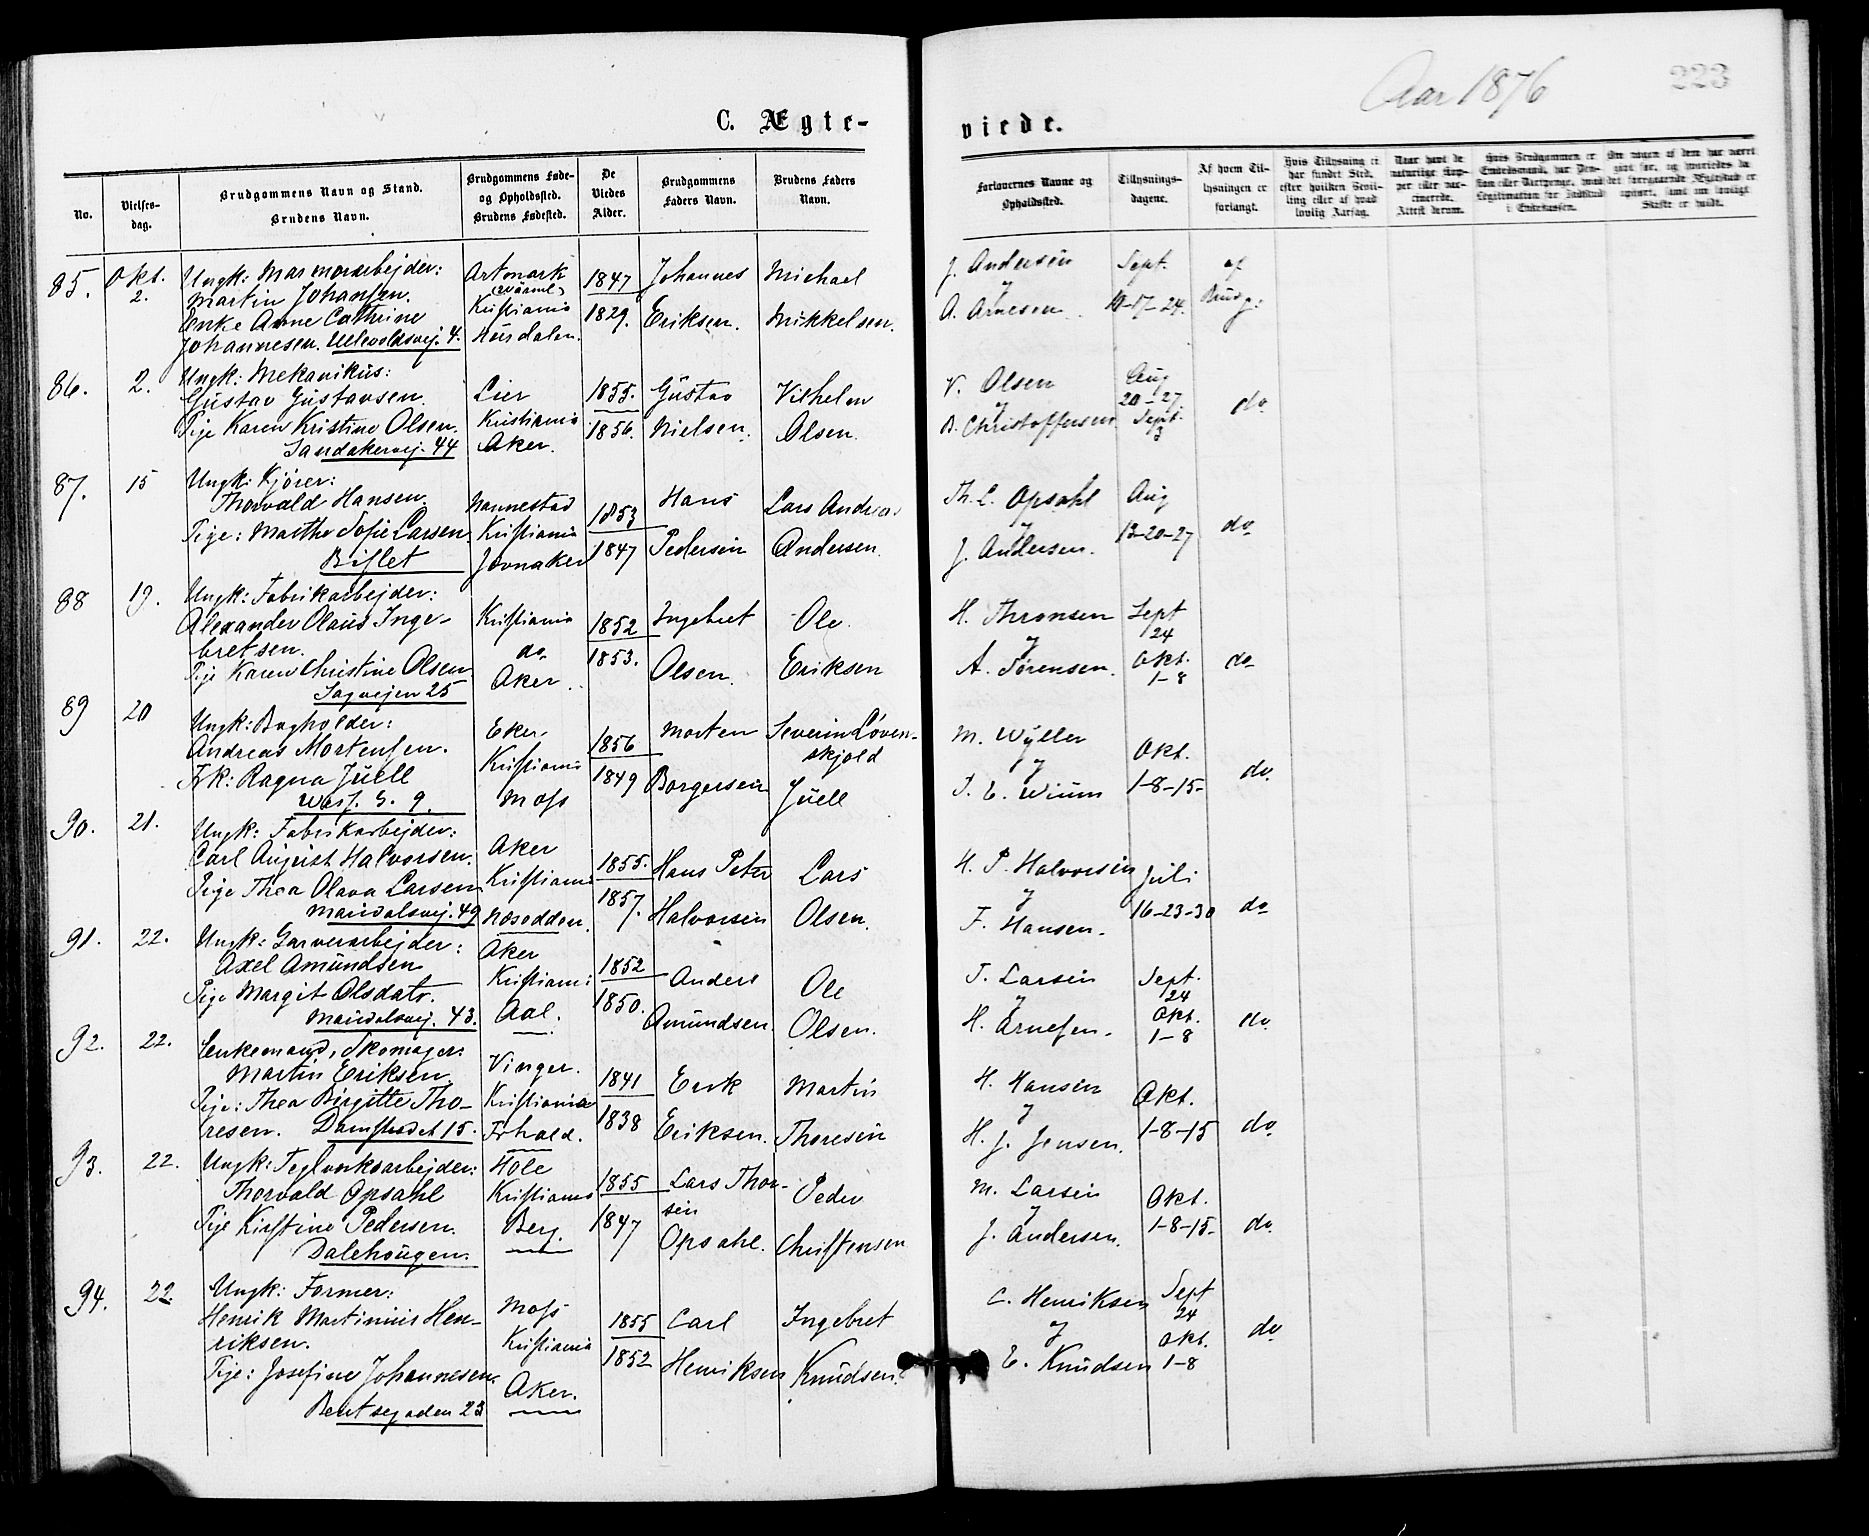 Aar 1876
223
C. Ægte-
viede.
No.
Vielses-
dag.
Brudgommens Navn og Stand.
Brudens Navn.
Brudgommens Føde-
og Opholdssted.
Brudens Fødested.
De
Viedes
Alder.
Brudgommens
Faders Navn.
Brudens Faders
Navn.
Forlovernes Navne og
Opholdssted.
Tillysnings-
dagene.
Af hvem Til-
lysningen er
forlangt.
Hvis Tillysning ei
har fundet Sted,
efter hvilken Bevil-
ling eller af hvad
lovlig Aarsag.
85. Okt. 2.
Ungk: Marmorarbejder:
Martin Johansen.
Enke Anne Cathrine
Johannesen. Ullevoldsvej. 4.
Artmark
Kristiania
Hurdalen.
1847
1829.
Johannes
Eriksen.
Michael
Mikkelsen.
J. Andersen
y
A. Arnesen
Sept.
10-17-24.
af
Brudg:
86. 2.
Ungk: Mekanikus:
Gustav Gustavsen.
Pige Karen Kristine Olsen.
Sandakervej. 44
Lier
Kristiania
Aker.
1855.
1856.
Gustav
Nielsen.
Vilhelm
Olsen.
V. Olsen
y
B. Christoffersen
Aug
20-27
Sept.
3
do
87. 15
Ungk: Kjører:
Thorvald Hansen.
Pige: Marthe Sofie Larsen
Bislet
Nannestad
Kristiania
Jevnaker
1853
1847
Hans
Pedersen
Lars Andreas
Andersen.
Th. L. Opsahl
y
J. Andersen.
Aug
13-20-27
do
88 19.
Ungk: Fabrikarbejder:
Alexander Olaus Inge-
bretsen.
Pige Karen Christine Olsen
Sagvejen 25
Kristiania
do
Aker.
1852
1853.
Ingebret
Olsen.
Ole.
Eriksen
H. Thronsen
y
A. Sørensen.
Sept
24
Okt.
1-8
do
89 20
Ungk: Bogholder:
Andreas Mortensen.
Frk: Ragna Juell
Eker
Kristiania
Moss
1856
1849
Morten
Borgersen
Severin Løven-
skjold
Juell
M. Wyller
y
Okt.
1-8-15-
do.
90. 21.
Ungk: Fabrikarbejder:
Carl August Halvorsen.
Pige Thea Olava Larsen
Maridalsvej. 49
Aker
Kristiania
Næsodden.
1855.
1857.
Hans Peter
Halvorsen
Lars
Olsen.
H. P. Halvorsen
y
F. Hansen.
Juli
16-23-30
do
91. 22.
Ungk: Garverarbejder:
Axel Amundsen
Pige Margit Olsdatr.
Maridalsvej. 43.
Aker
Kristiania
Aal.
1852
1850.
Anders
Amundsen.
Ole
Olsen.
T. Larsen
y
H. Arnesen.
Sept.
24
Okt.
1-8
do
92. 22.
Enkemand, Skomager:
Martin Eriksen
Pige: Thea Birgitte Tho-
resen. Damstredet 15.
Vinger.
Kristiania
Frhald.
1841
1838
Erik
Eriksen.
Martin
Thoresen
H. Hansen
y
H. J. Jensen.
Okt.
1-8-15
do
93. 22.
Ungk: Teglverksarbejder:
Thorvald Opsahl
Pige Kirstine Pedersen.
Dalehougen.
Hole
Kristiania
Berg.
1855
1847
Lars Thor-
sen
Opsahl.
Peder
Christensen
M. Larsen
y
J. Andersen.
Okt.
1-8-15-
do
94. 22.
Ungk: Former:
Henrik Martinius Hen-
riksen.
Pige: Josefine Johannesen.
Bentsegaden 23
Moss
Kristiania
Aker.
1855
1852
Carl
Henriksen
Ingebret
Knudsen.
C. Henriksen
y
E. Knudsen
Sept
24
Okt.
1-8
do